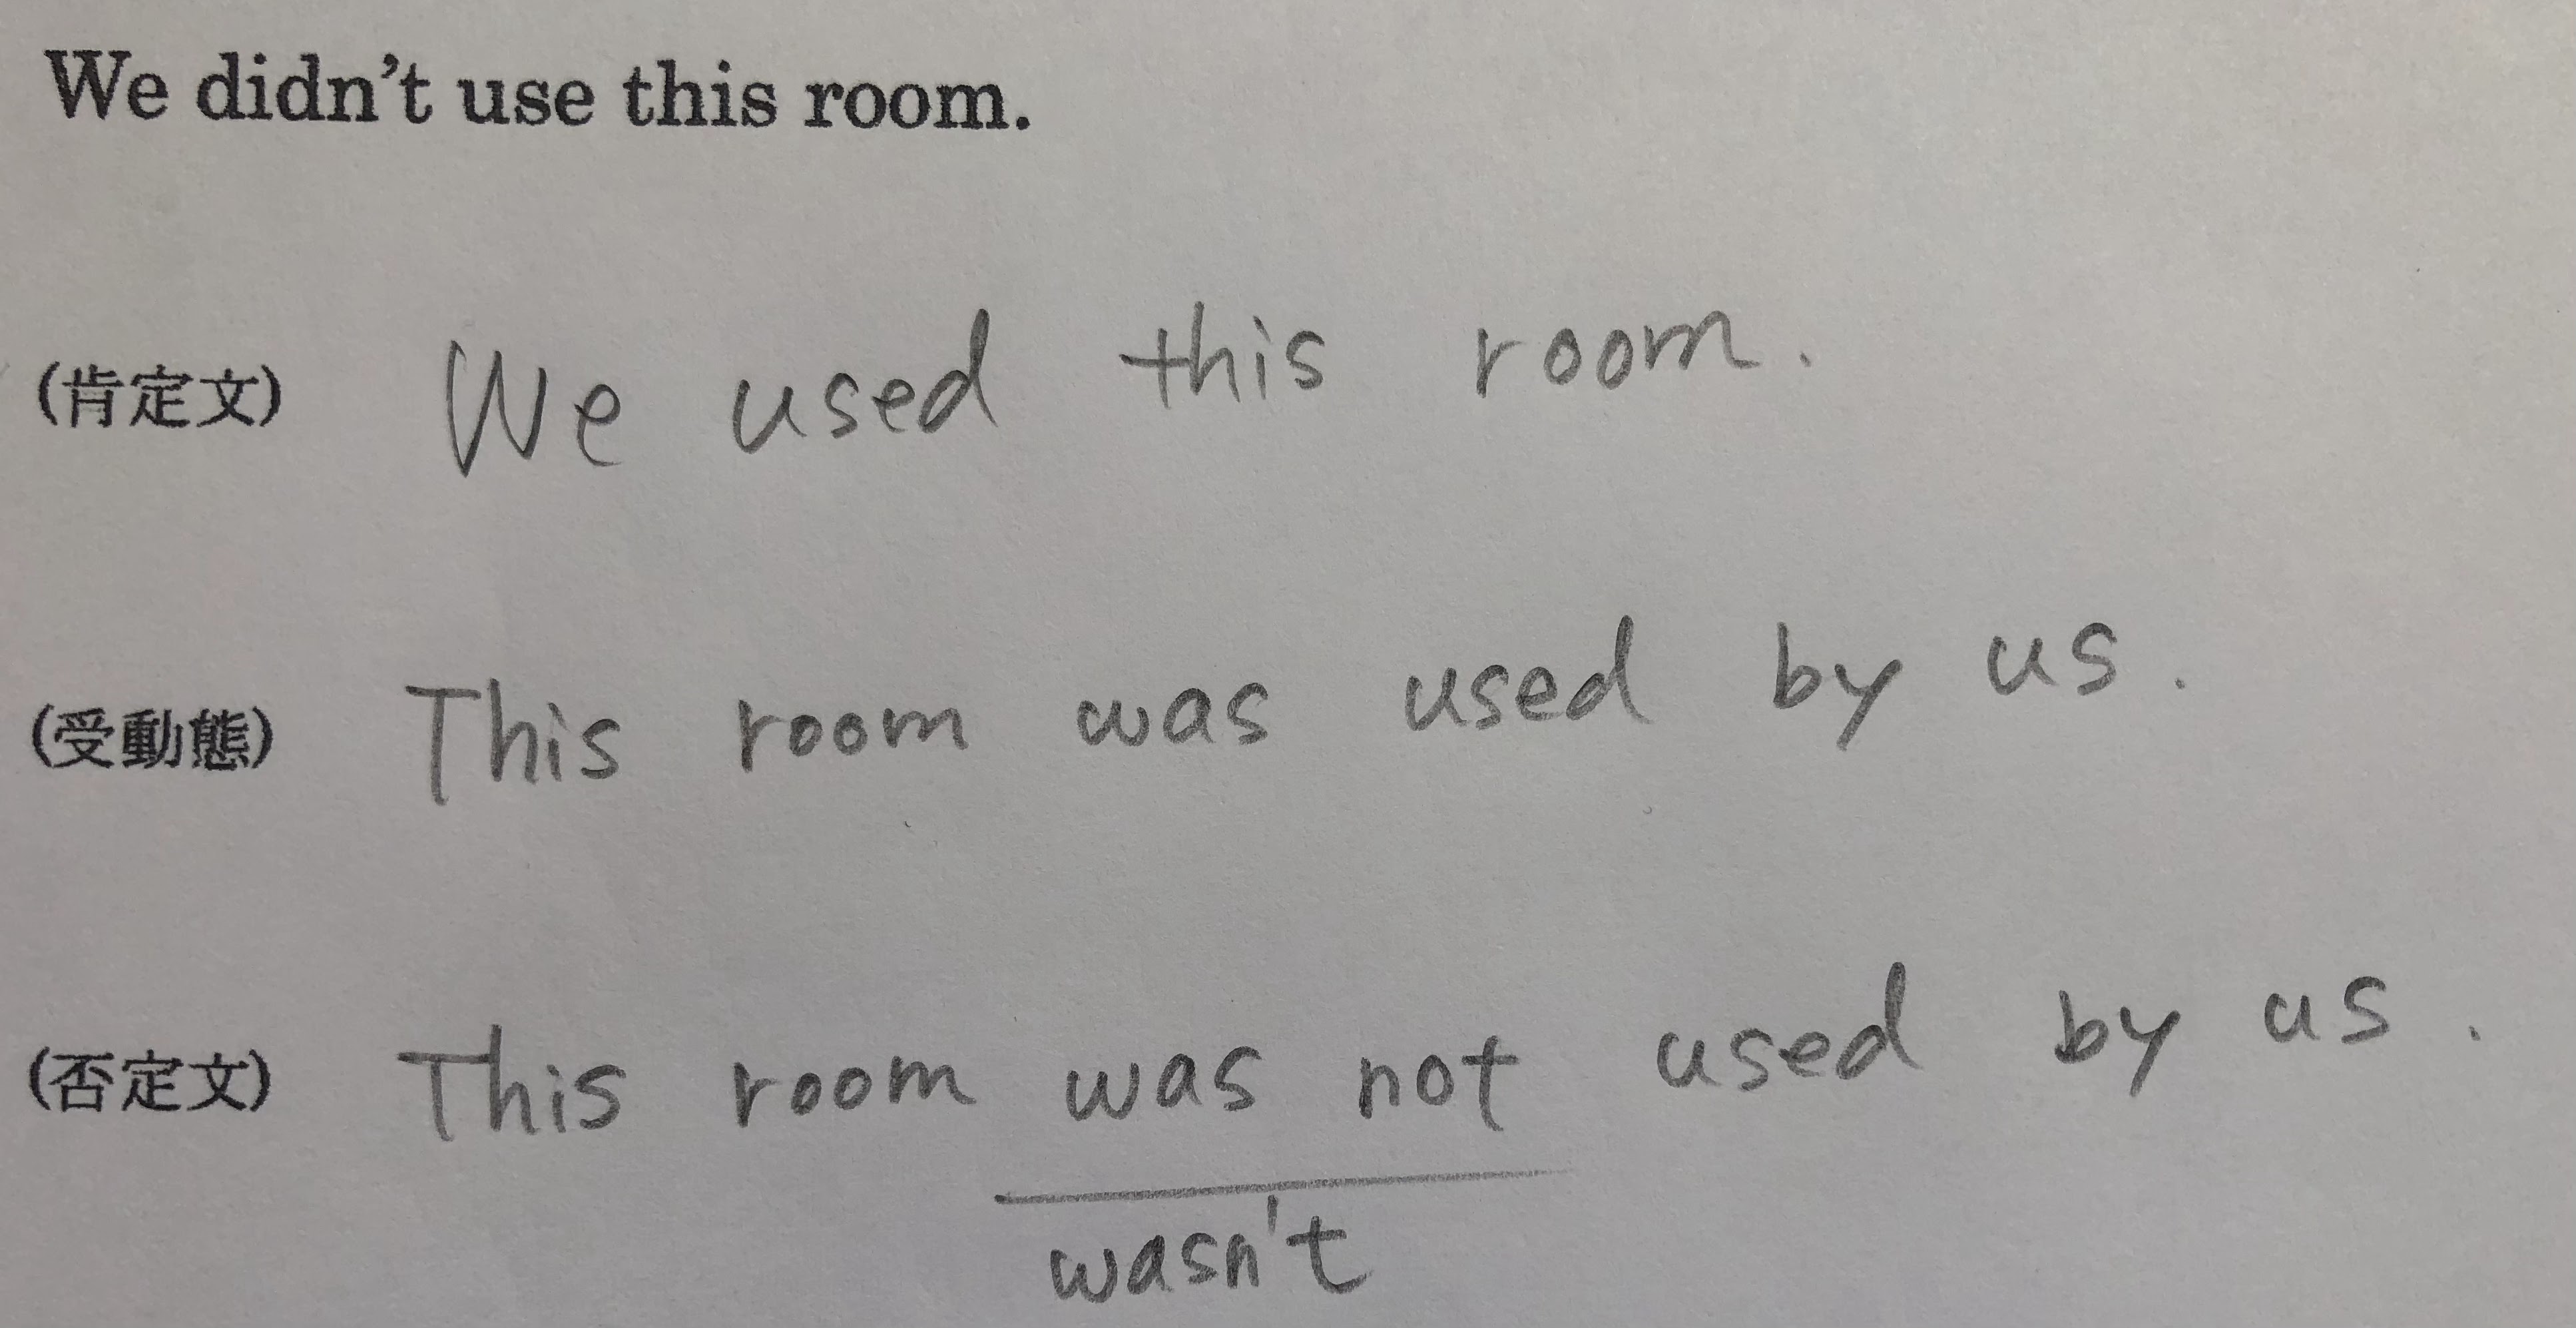 We didn't use this room.
(肯定文) We used this room.
(受動態) This room was used by us.
(否定文) This room was not used by us.
wasn't